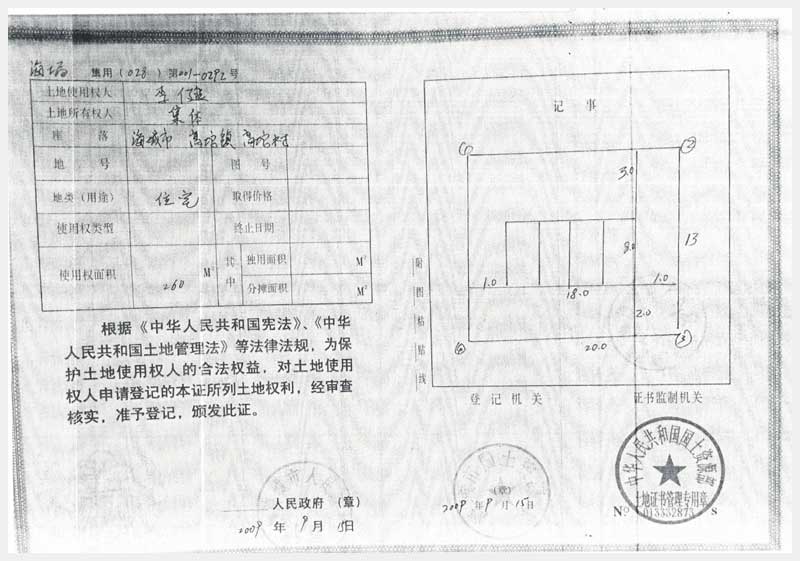 集用（028）第001-0292号
土地使用权人 李
土地所有权人 集体
座落 海城市 高坨镇 高坨村
地号 图号
地类（用途） 住宅 取得价格
使用权类型 终止日期
使用权面积 260 M² 其中 独用面积 M²
分摊面积 M²
根据《中华人民共和国宪法》、《中华
人民共和国土地管理法》等法律法规，为保
护土地使用权人的合法权益，对土地使用
权人申请登记的本证所列土地权利，经审查
核实，准予登记，颁发此证。
人民政府（章）
2009年9月15日
记事
① ②
3.0
8.0 13
1.0 18.0 1.0
2.0
④ 20.0 ③
附图粘贴线
登记机关 证书监制机关
（章）
2009年9月15日
中华人民共和国国土资源部
土地证书管理专用章
Nº 013332873 s